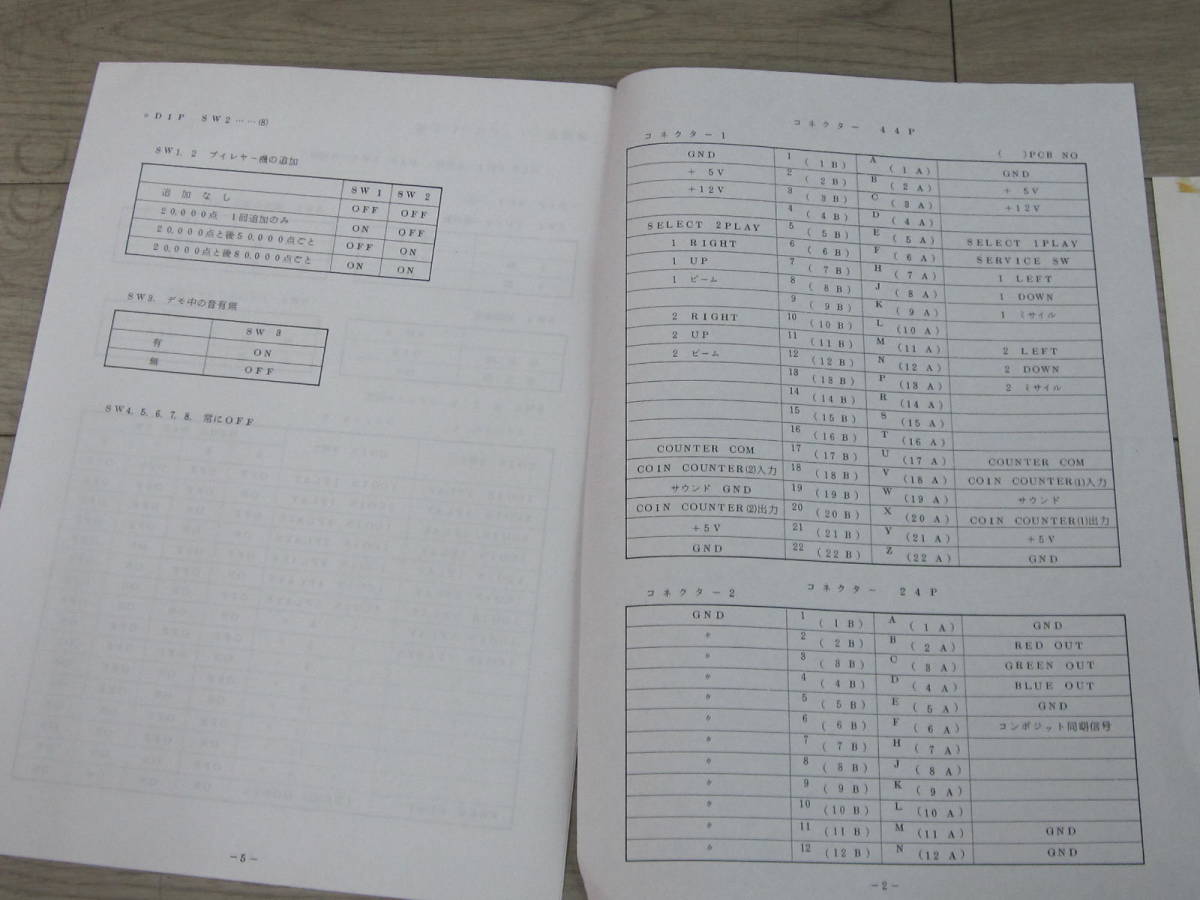 DIP SW2……(8)
SW1. 2 プィレヤー機の追加
SW1 SW2
追加なし OFF OFF
20,000点 1回追加のみ ON OFF
20,000点と後50,000点ごと OFF ON
20,000点と後80,000点ごと ON ON
SW3. デモ中の音有無
SW 3
有 ON
無 OFF
SW4. 5. 6. 7. 8. 常にOFF
-5-
コネクター 44P
コネクター1 ( )PCB NO
GND 1 (1B) A (1A) GND
+ 5V 2 (2B) B (2A) + 5V
+12V 3 (3B) C (3A) +12V
4 (4B) D (4A)
SELECT 2PLAY 5 (5B) E (5A) SELECT 1PLAY
1 RIGHT 6 (6B) F (6A) SERVICE SW
1 UP 7 (7B) H (7A) 1 LEFT
1 ビーム 8 (8B) J (8A) 1 DOWN
9 (9B) K (9A) 1 ミサイル
2 RIGHT 10 (10B) L (10A)
2 UP 11 (11B) M (11A) 2 LEFT
2 ビーム 12 (12B) N (12A) 2 DOWN
13 (13B) P (13A) 2 ミサイル
14 (14B) R (14A)
15 (15B) S (15A)
16 (16B) T (16A)
COUNTER COM 17 (17B) U (17A) COUNTER COM
COIN COUNTER(2)入力 18 (18B) V (18A) COIN COUNTER(1)入力
サウンド GND 19 (19B) W (19A) サウンド
COIN COUNTER(2)出力 20 (20B) X (20A) COIN COUNTER(1)出力
+5V 21 (21B) Y (21A) +5V
GND 22 (22B) Z (22A) GND
コネクター2 コネクター 24P
GND 1 (1B) A (1A) GND
〃 2 (2B) B (2A) RED OUT
〃 3 (3B) C (3A) GREEN OUT
〃 4 (4B) D (4A) BLUE OUT
〃 5 (5B) E (5A) GND
〃 6 (6B) F (6A) コンポジット同期信号
〃 7 (7B) H (7A)
〃 8 (8B) J (8A)
〃 9 (9B) K (9A)
〃 10 (10B) L (10A)
〃 11 (11B) M (11A) GND
〃 12 (12B) N (12A) GND
-2-